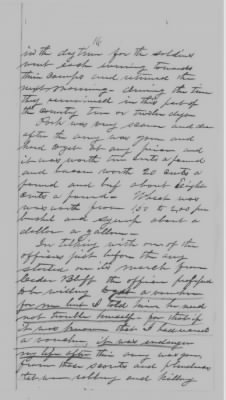 16
in the day time for the soldiers
went each evening towards
their camps and returned the
next morning - during the time
they remained in this part of
the country ten or twelve days
Pork was very scarce and
after the army was gone and
hard to get at any price and
it was worth ten cents a pound
and bacon worth 20 cents a
pound and beef about Eight
cents a pound. Wheat was
was worth from 1.50 to 2.00 per
bushel and syrup about a
dollar a gallon -
In talking with one of the
officers just before the army
started on its march from
Cedar Bluff the officer proffered
a voucher
for me but I told him he need
not trouble himself for that if
it was known that I had
a voucher, it would endanger
my life after the army was gone,
From these scouts and
robbing and killing